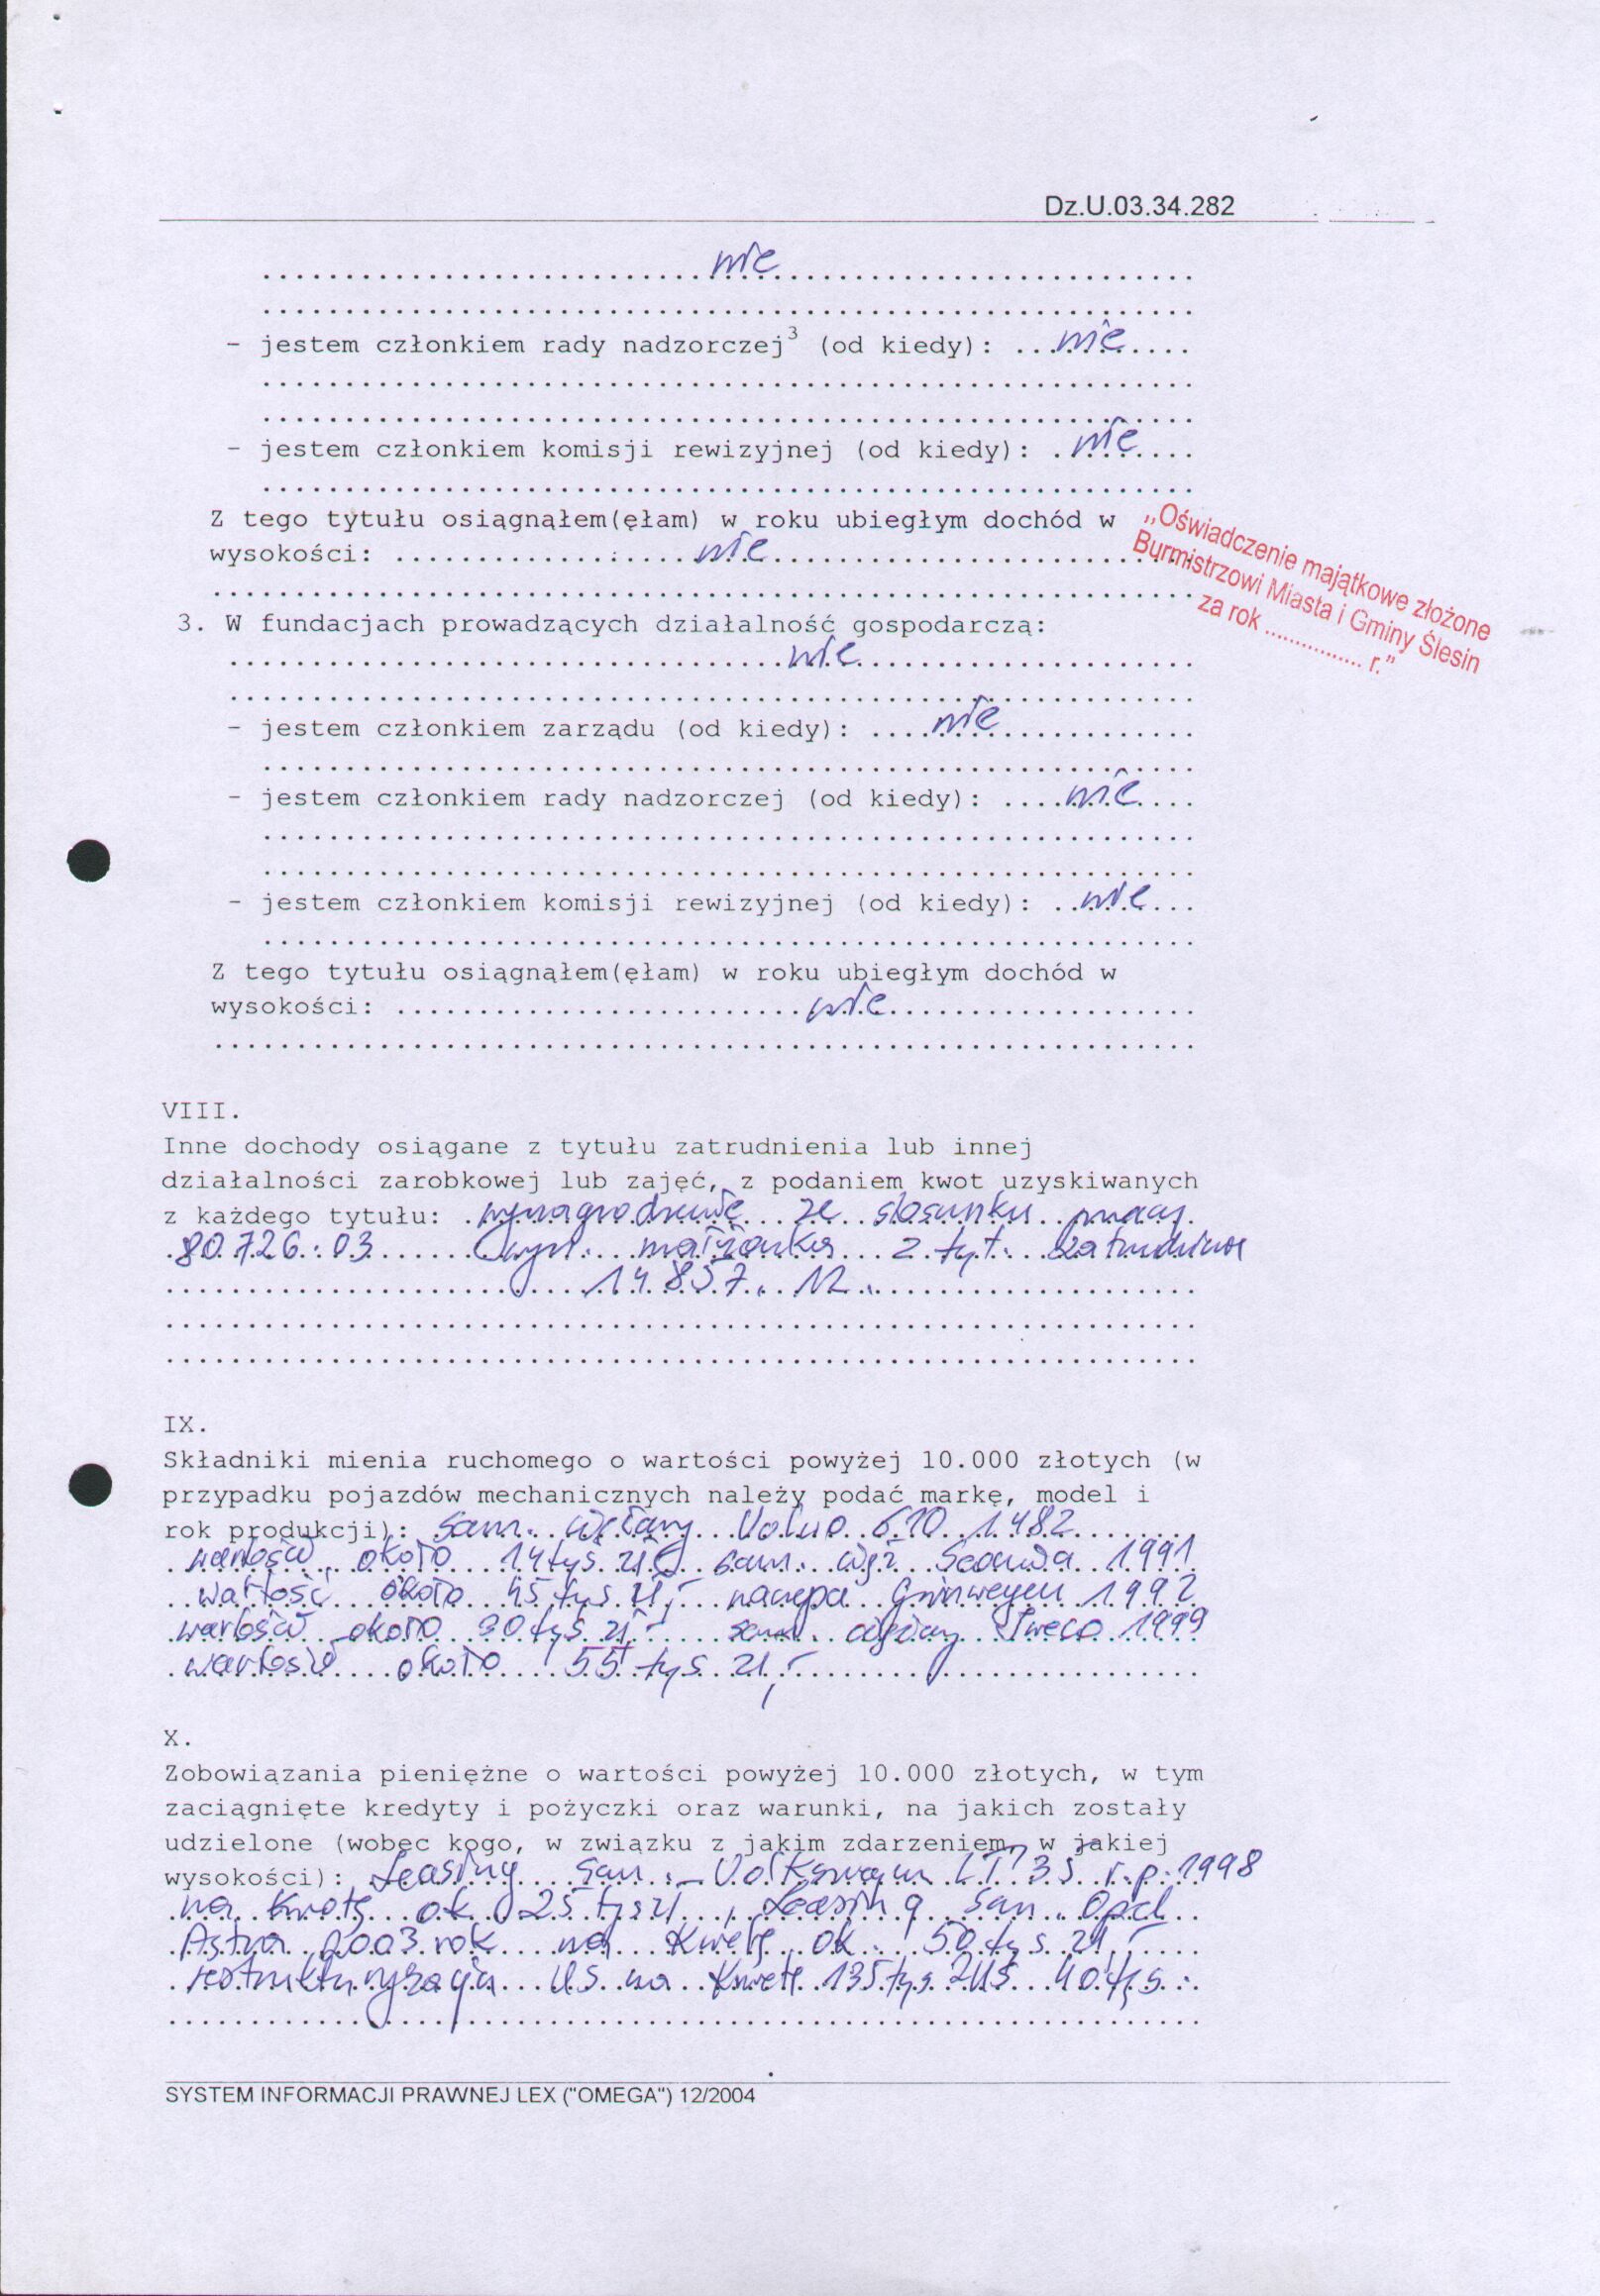 Dz.U.03.34.282
nie
- jestem członkiem rady nadzorczej³ (od kiedy): nie
- jestem członkiem komisji rewizyjnej (od kiedy): nie
Z tego tytułu osiągnąłem(ęłam) w roku ubiegłym dochód w
wysokości: nie
„Oświadczenie majątkowe złożone
Burmistrzowi Miasta i Gminy Ślesin
za rok ............... r.”
3. W fundacjach prowadzących działalność gospodarczą:
nie
- jestem członkiem zarządu (od kiedy): nie
- jestem członkiem rady nadzorczej (od kiedy): nie
- jestem członkiem komisji rewizyjnej (od kiedy): nie
Z tego tytułu osiągnąłem(ęłam) w roku ubiegłym dochód w
wysokości: nie
VIII.
Inne dochody osiągane z tytułu zatrudnienia lub innej
działalności zarobkowej lub zajęć, z podaniem kwot uzyskiwanych
z każdego tytułu: wynagrodzenie ze stosunku pracy
80.726.03 wyn. małżonka z tyt. zatrudnienia
14.857.12
IX.
Składniki mienia ruchomego o wartości powyżej 10.000 złotych (w
przypadku pojazdów mechanicznych należy podać markę, model i
rok produkcji): sam. ciężarowy Volvo 610 1982
wartość około 14 tyś. zł sam. cięż Scania 1991
wartość około 45 tys. zł,- naczepa 1992
wartość około 30 tyś zł,- sam. ciężarowy Iveco 1999
wartość około 55 tys. zł,-
X.
Zobowiązania pieniężne o wartości powyżej 10.000 złotych, w tym
zaciągnięte kredyty i pożyczki oraz warunki, na jakich zostały
udzielone (wobec kogo, w związku z jakim zdarzeniem, w jakiej
wysokości): Leasing sam. - Volkswagen LT 35 r.p. 1998
na kwotę ok 25 tyś zł, Leasing sam. Opel
Astra 2003 rok na kwotę ok. 50 tys. zł,-
restrukturyzacja US na kwotę 135 tys. ZUS 40 tyś.
SYSTEM INFORMACJI PRAWNEJ LEX ("OMEGA") 12/2004